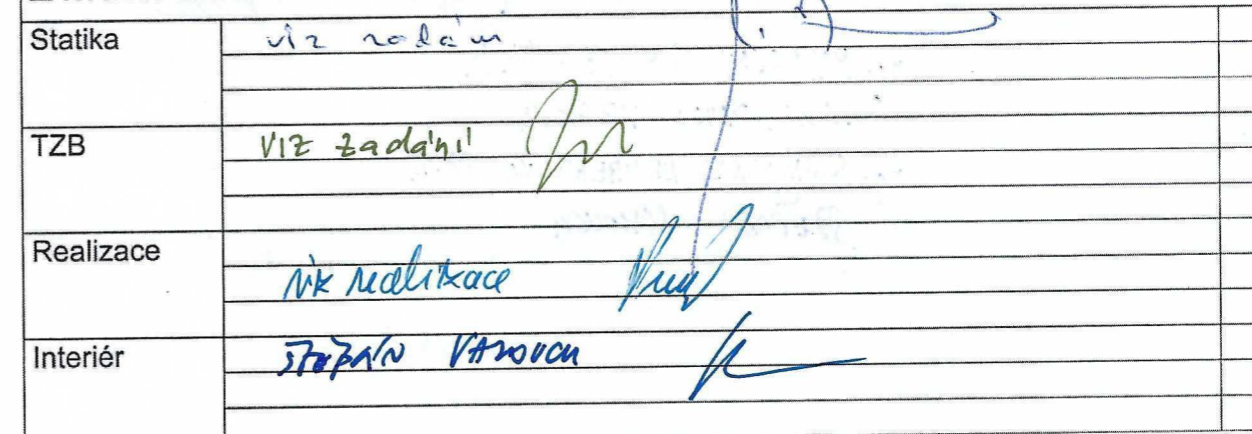 Statika viz zadání
TZB VIZ zadání
Realizace viz realizace
Interiér ŠTĚPÁN